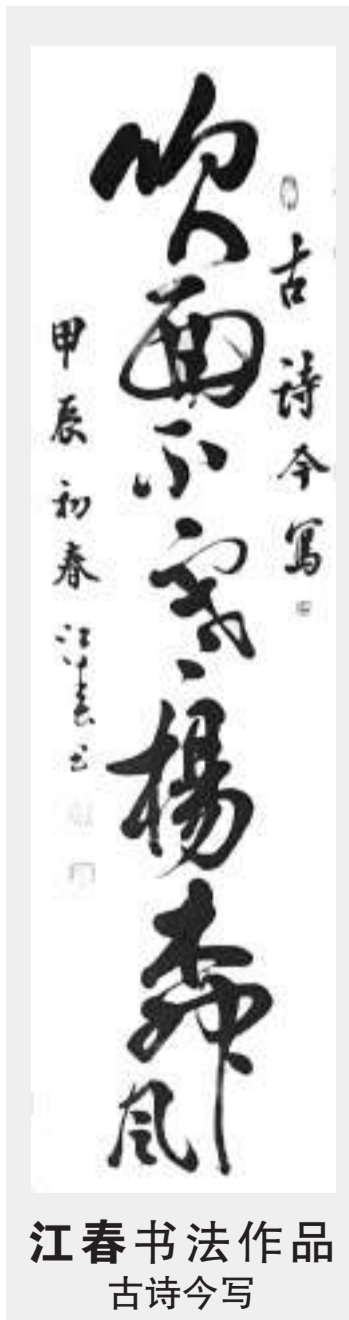 古诗今写
吹面不寒楊柳风
甲辰初春 江春书
江春书法作品
古诗今写